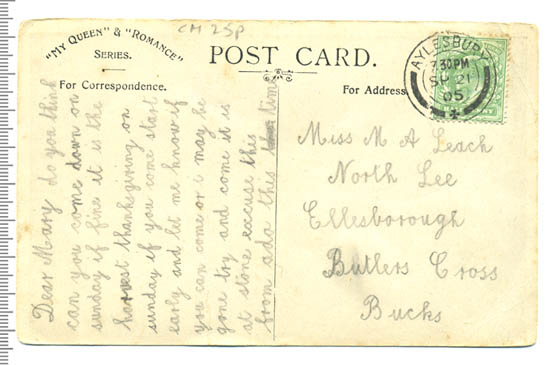 CM 25P
"MY QUEEN" & "ROMANCE"
SERIES.
POST CARD.
For Correspondence.
For Address
AYLESBURY
7.30PM
SP 21
05
Dear Mary do you think
can you come down on
sunday if fine it is the
harvest thanksgiving on
sunday if you come start
early and let me know if
you can come or i may be
gone try and come it is
at stone excuse this
from ada this time
Miss M A Leach
North Lee
Ellesborough
Butlers Cross
Bucks